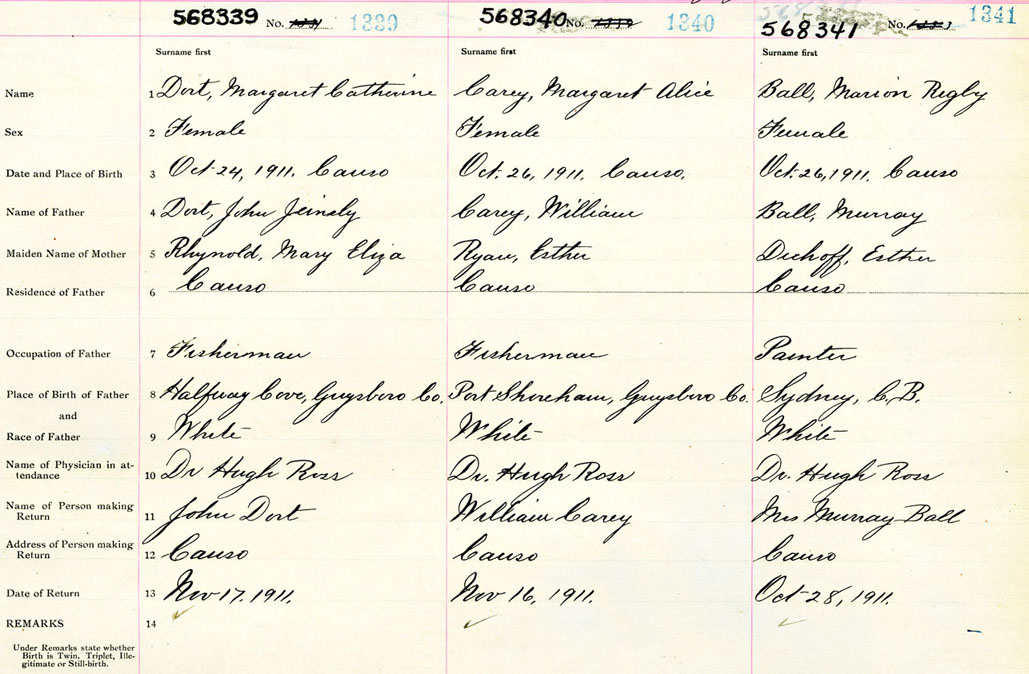 568339 No. 1339 568340 No. 1340 568341 No. 1341
Surname first Surname first Surname first
Name 1 Dort, Margaret Catherine Carey, Margaret Alice Ball, Marion Rigby
Sex 2 Female Female Female
Date and Place of Birth 3 Oct 24, 1911. Canso Oct. 26, 1911. Canso. Oct. 26, 1911. Canso
Name of Father 4 Dort, John Carey, William Ball, Murray
Maiden Name of Mother 5 Rhynold, Mary Eliza Ryan, Esther Esther
Residence of Father 6 Canso Canso Canso
Occupation of Father 7 Fisherman Fisherman Painter
Place of Birth of Father 8 Halfway Cove, Guysboro Co. Port Shoreham, Guysboro Co. Sydney, C.B.
and
Race of Father 9 White White White
Name of Physician in at-
tendance 10 Dr Hugh Ross Dr. Hugh Ross Dr. Hugh Ross
Name of Person making
Return 11 John Dort William Carey Mrs Murray Ball
Address of Person making
Return 12 Canso Canso Canso
Date of Return 13 Nov 17. 1911. Nov 16, 1911. Oct 28, 1911.
REMARKS 14
Under Remarks state whether
Birth is Twin, Triplet, Ille-
gitimate or Still-birth.